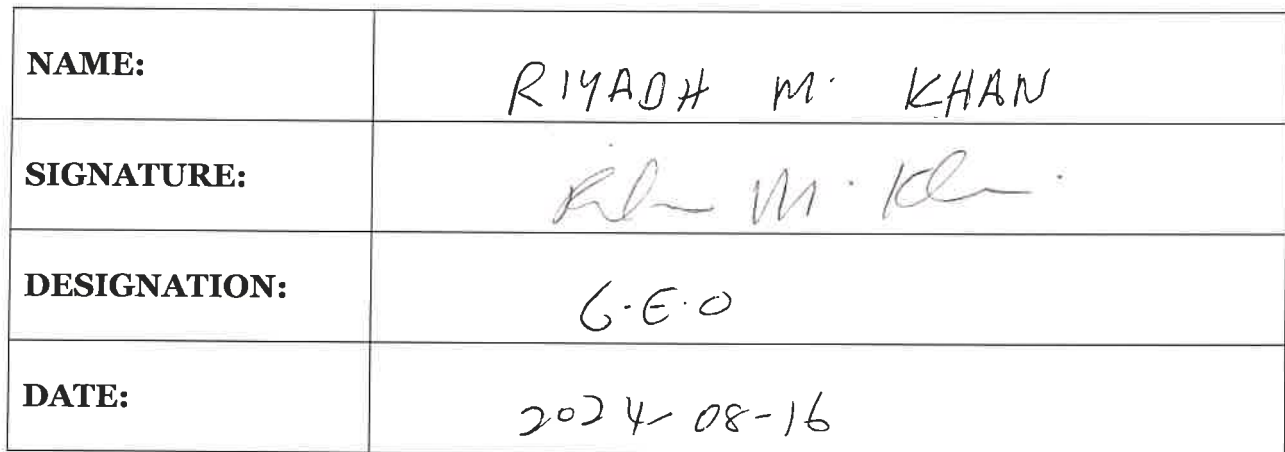 NAME: RIYADH M. KHAN
SIGNATURE:
DESIGNATION: C.E.O
DATE: 2024-08-16